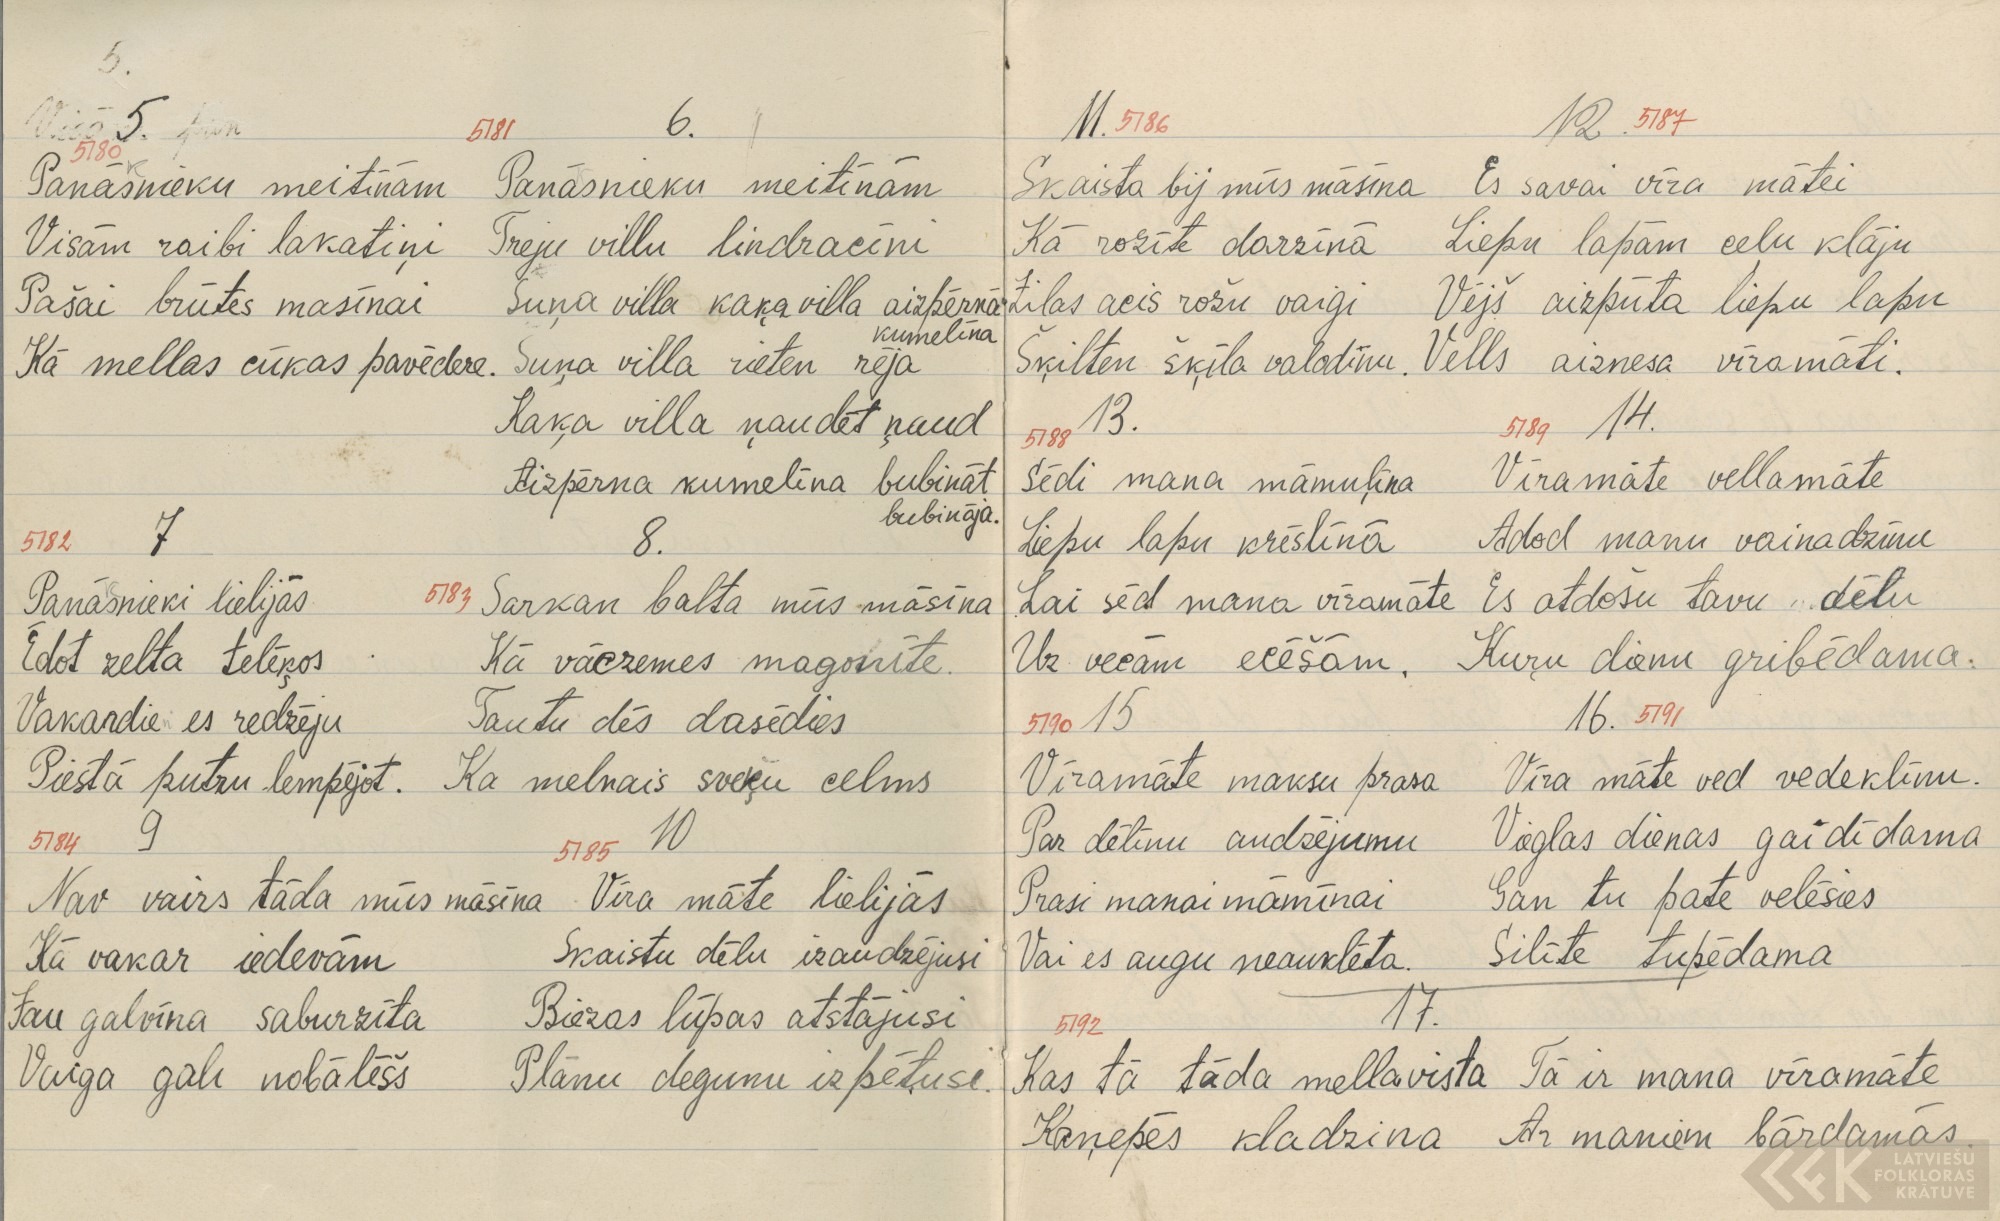 5.
5.
5180
Panāsnieku meitinām
Visām raibi lakatiņi
Pašai brūtes masīnai
Kā mellas cūkas pavēdere.
5181 6.
Panāsnieku meitīnām
Treju villu lindracīni
Suņa villa kaķa villa aizpērnā
kumelīna
Suņa villa rieten rēja
Kaķa villa ņaudēt ņaud
Aizpērna kumelīna bubināt
bubināja.
5182 7
Panāsnieki lielijās
Ēdot zelta telēķos
Vakardie es redzēju
Piestā putru lempējot.
8.
5183 Sarkan balta mūs māsīna
Kā vāczemes magonīte.
Tautu dēs dasēdies
Ka melnais sveķu celms
5184 9
Nav vairs tāda mūs māsīna
Kā vakar iedevām
Jau galvīna saburzīta
Vaiga gali nobālēšs
5185 10
Vīra māte lielijās
Skaistu dēlu izaudzējusi
Biezas lūpas atstājusi
Plānu degunu izpētusi.
11. 5186
Skaista bij mūs māsīna
Kā rozīte darzīnā
Zilas acis rožu vaigi
Šķilten šķīla valodīnu.
12. 5187
Es savai vīra mātei
Liepu lapām celu klāju
Vējš aizpūta liepu lapu
Vells aiznesa vīramāti.
5188 13.
Sēdi mana māmuļīna
Liepu lapu krēslīnā
Lai sēd mana vīramāte
Uz vecām ecēšām.
5189 14.
Vīramāte vellamāte
Adod manu vainadzīnu
Es atdošu tavu dēlu
Kuŗu dienu gribēdama.
5190 15
Vīramāte maksu prasa
Par dēlīnu audzējumu
Prasi manai māmīnai
Vai es augu neauklēta.
16. 5191
Vīra māte ved vedeklīnu.
Vieglas dienas gaidīdama
Gan tu pate velēsies
Silīte tupēdama
5192 17.
Kas tā tāda mellavista
Kaņepēs kladzina
Tā ir mana vīramāte
Ar maniem bārdamās.
LATVIEŠU
FOLKLORAS
KRĀTUVE